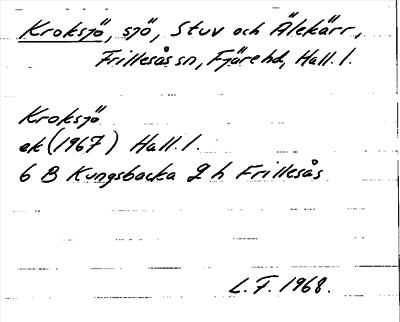 Kroksjö, sjö, Stuv och Älekärr,
Frillesås sn, Fjäre hd, Hall. l.
Kroksjö
ek (1967) Hall. l.
6 B Kungsbacka 2 h Frillesås
L. F. 1968.